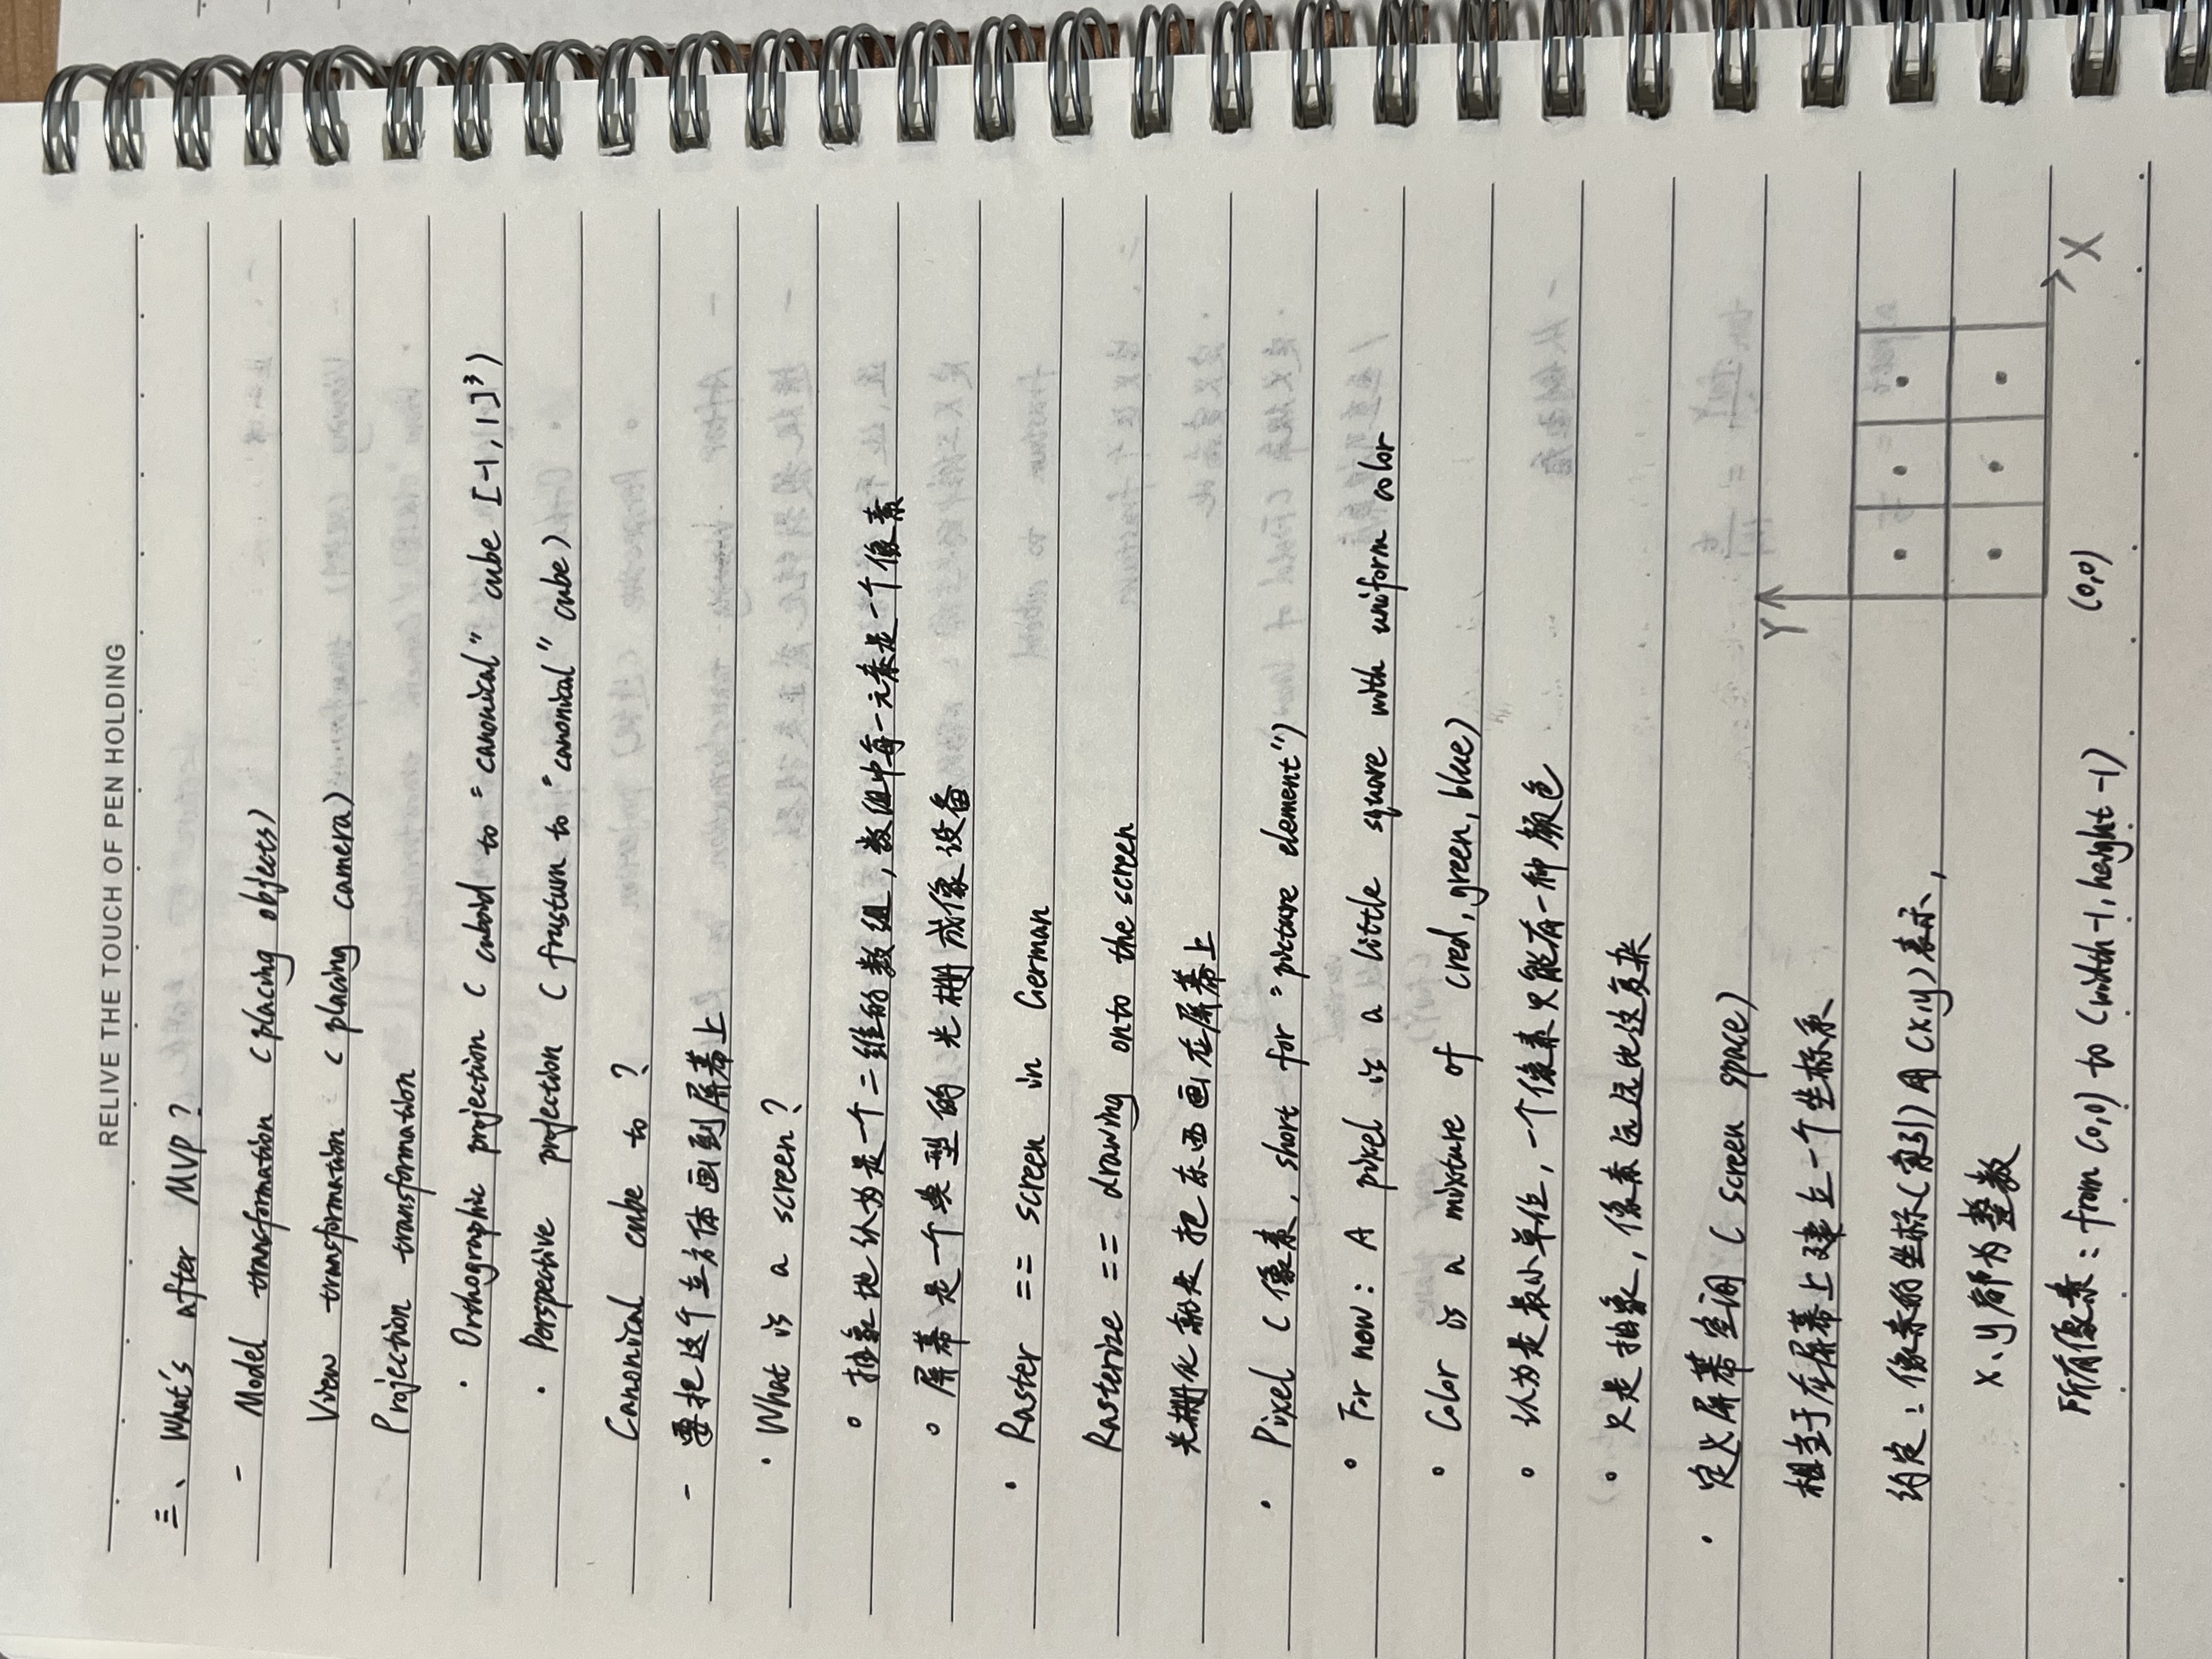 RELIVE THE TOUCH OF PEN HOLDING
三、What's after MVP?
- Model transformation (placing objects)
View transformation (placing camera)
Projection transformation
· Orthographic projection (cuboid to "canonical" cube [-1,1]³)
· Perspective projection (frustum to "canonical" cube)
Canonical cube to ?
- 要把这个立方体画到屏幕上
· What is a screen?
◦ 抽象地认为是一个二维的数组,数组中每一元素是一个像素
◦ 屏幕是一个典型的光栅成像设备
· Raster == screen in German
Rasterize == drawing onto the screen
光栅化就是把东西画在屏幕上
· Pixel (像素, short for "picture element")
◦ For now: A pixel is a little square with uniform color
◦ Color is a mixture of (red, green, blue)
◦ 认为是最小单位,一个像素只能有一种颜色
◦ 只是抽象,像素远远比这复杂
· 定义屏幕空间 (screen space)
相当于在屏幕上建立一个坐标系
约定:像素的坐标(索引)用(x,y)表示,
x、y都为整数
所有像素:from (0,0) to (width-1, height-1)
Y
(0,0)
X